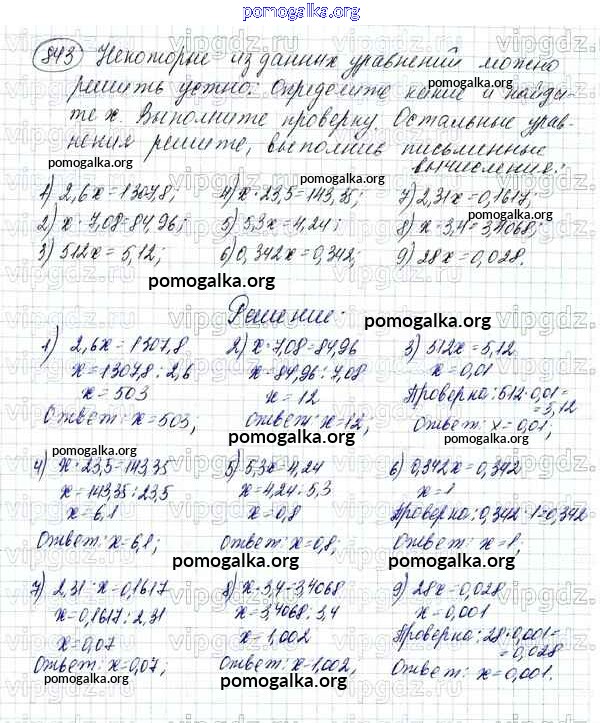 pomogalka.org
843 Некоторые из данных уравнений можно
решить устно. Определите какие и найди-
те x. Выполните проверку. Остальные урав-
нения решите, выполнив письменные
вычисления:
1) 2,6x=1307,8; 4) x·23,5=143,35; 7) 2,31x=0,1617;
2) x·7,08=84,96; 5) 5,3x=4,24; 8) x·3,4=3,4068;
3) 512x=5,12; 6) 0,342x=0,342; 9) 28x=0,028.
pomogalka.org
Решение:
1) 2,6x=1307,8 2) x·7,08=84,96 3) 512x=5,12
x=1307,8:2,6 x=84,96:7,08 x=0,01
x=503 x=12 Проверка: 512·0,01=
=5,12
Ответ: x=503; Ответ: x=12; Ответ: x=0,01;
pomogalka.org
4) x·23,5=143,35 5) 5,3x=4,24 6) 0,342x=0,342
x=143,35:23,5 x=4,24:5,3 x=1
x=6,1 x=0,8 Проверка: 0,342·1=0,342
Ответ: x=6,1; Ответ: x=0,8; Ответ: x=1;
pomogalka.org
7) 2,31·x=0,1617 8) x·3,4=3,4068 9) 28x=0,028
x=0,1617:2,31 x=3,4068:3,4 x=0,001
x=0,07 x=1,002 Проверка: 28·0,001=
=0,028
Ответ: x=0,07; Ответ: x=1,002; Ответ: x=0,001.
pomogalka.org